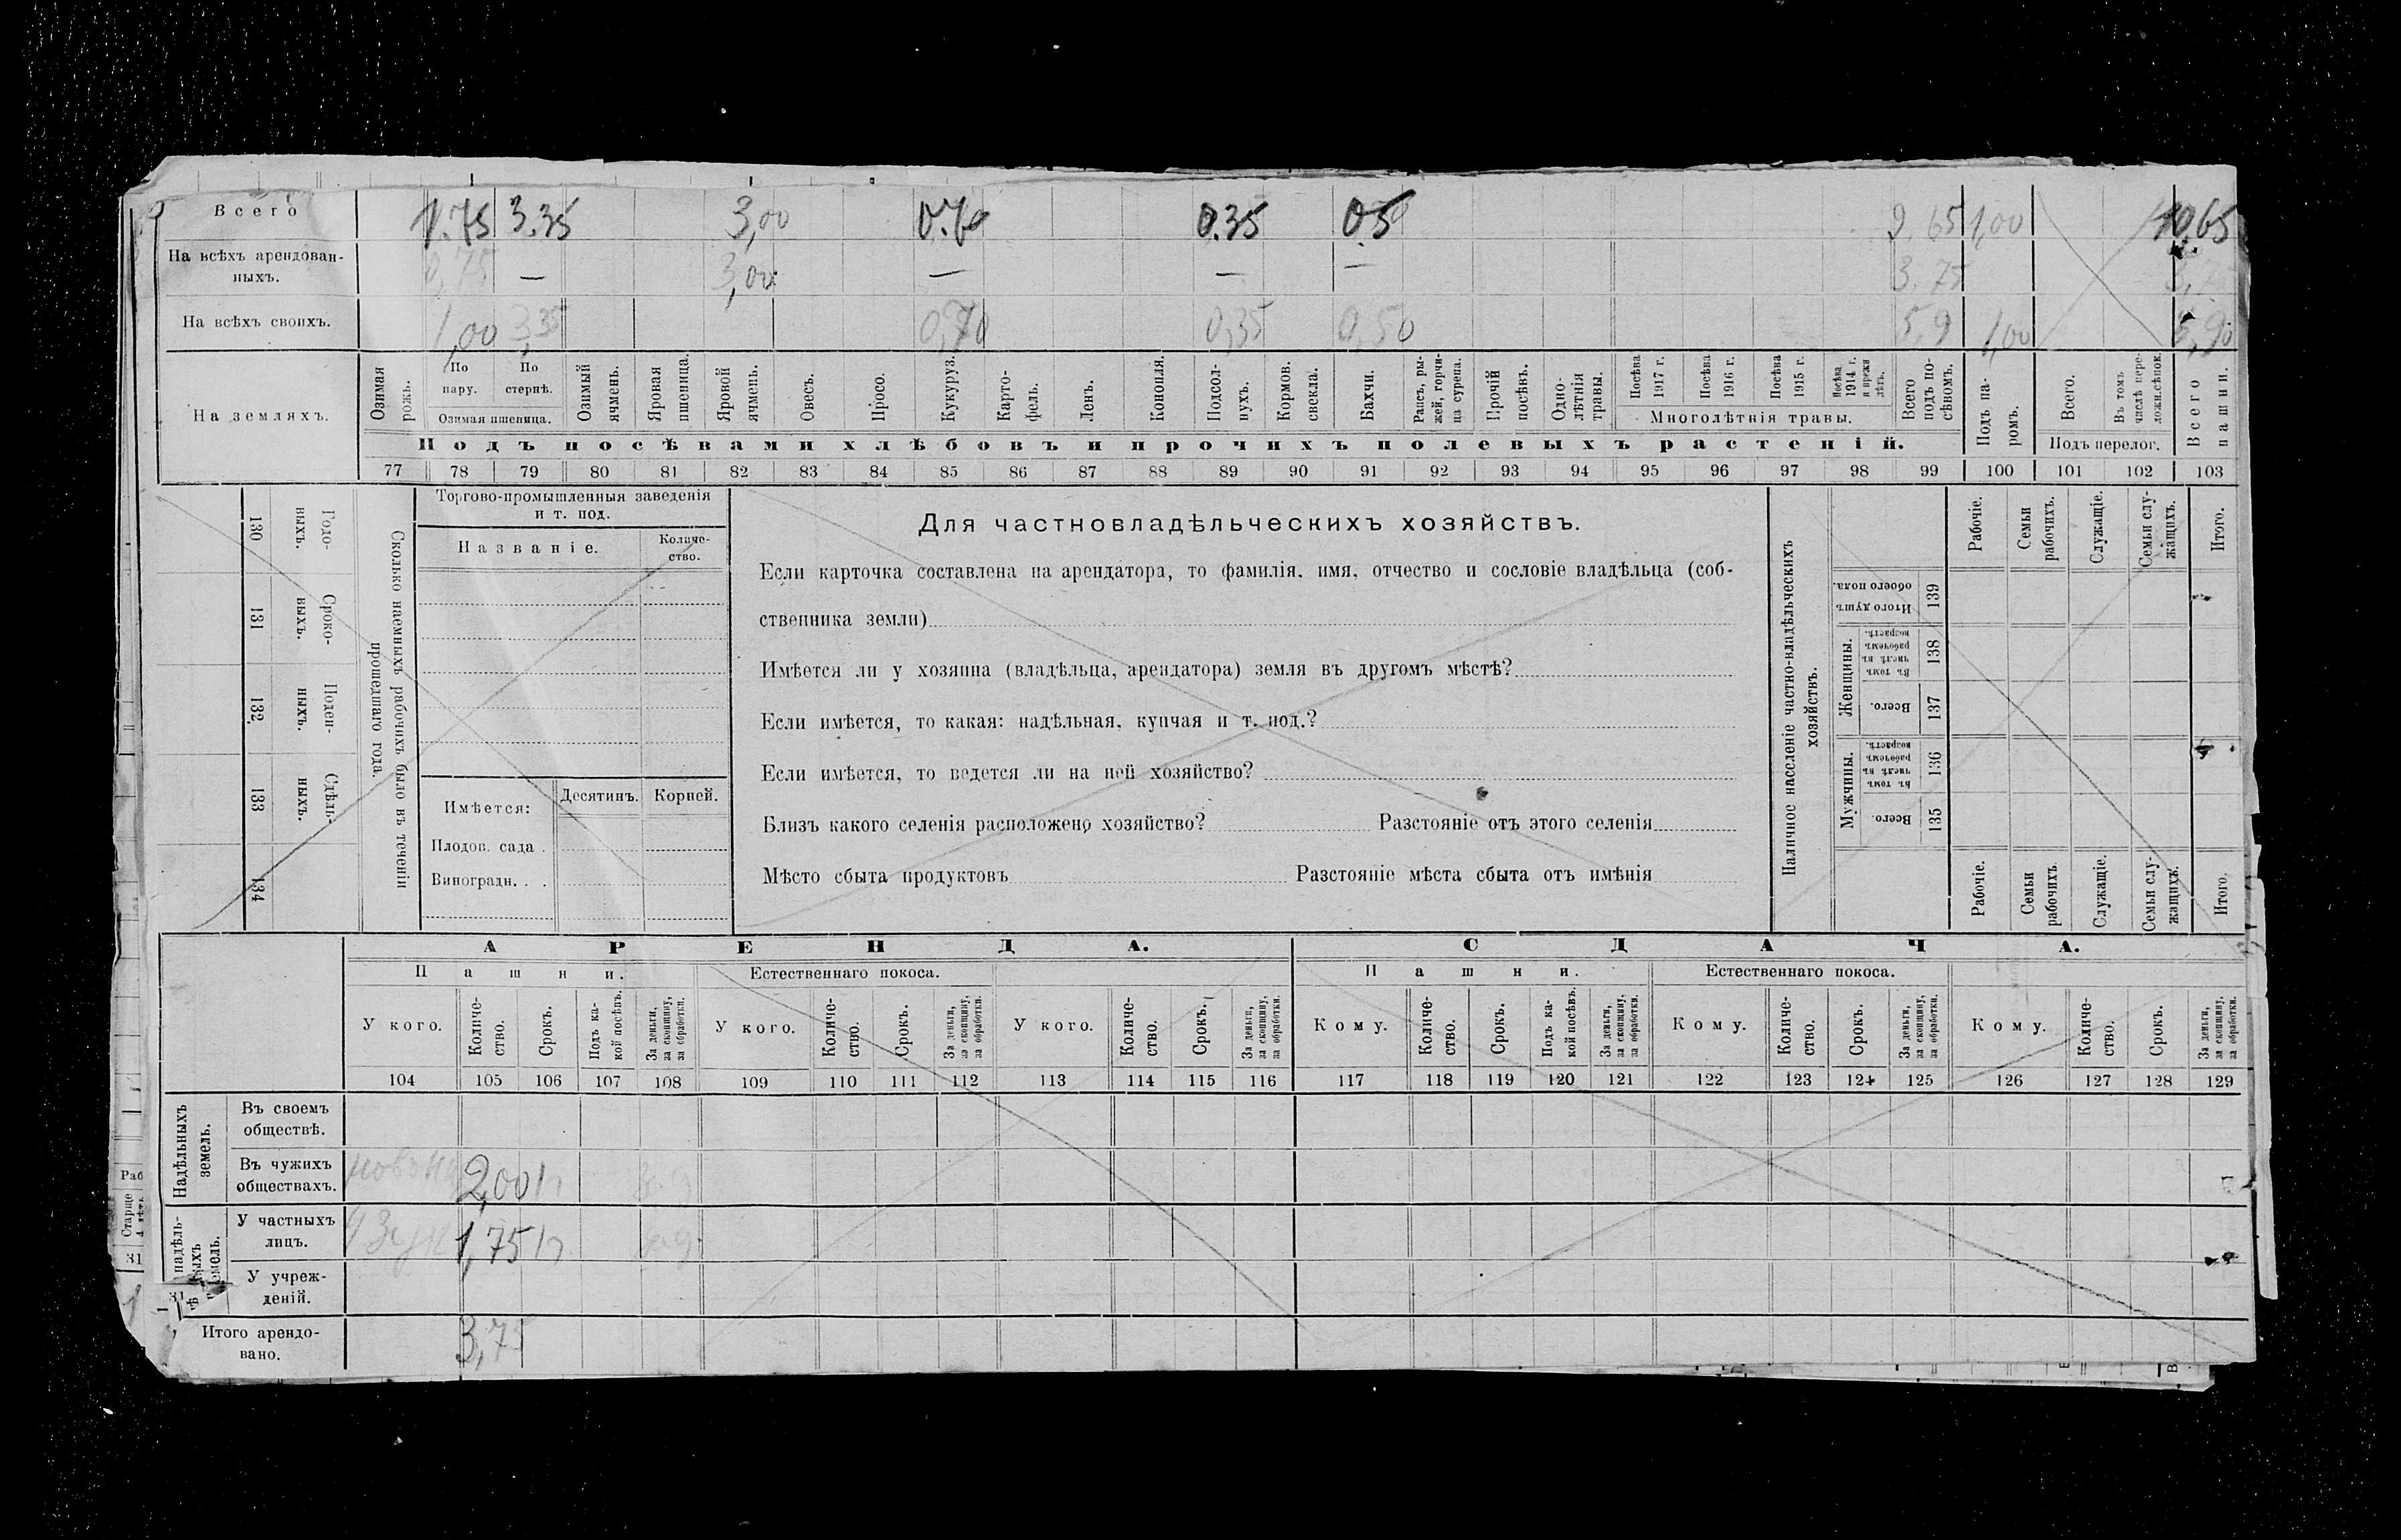 Всего 1.75 3.35 3,00 0.70 0.35 0.5 9.65 1,00 10.65
На всѣхъ арендован-
ныхъ. 0,75 — 3,00 — — — 3.75
На всѣхъ своихъ. 1,00 3,35 0,70 0,35 0,50 5,9 1,00 5,90
На земляхъ.
Озимая рожь.
По пару.
По стернѣ.
Озимая пшеница.
Озимый ячмень.
Яровая пшеница.
Яровой ячмень.
Овесъ.
Просо.
Кукуруз.
Карто-
фель.
Ленъ.
Конопля.
Подсол-
нухъ.
Кормов.
свекла.
Бахчи.
Рапсъ, ры-
жей, горчи-
ца сурепа.
Прочій
посѣвъ.
Одно-
лѣтнія
травы.
Посѣва
1917 г.
Посѣва
1916 г.
Посѣва
1915 г.
Посѣва
1914 г.
и прежн
лѣтъ.
Многолѣтнія травы.
Всего
подъ по-
сѣвомъ.
Подъ па-
ромъ.
Всего.
Въ томъ
числѣ пере-
ложн.сѣнок.
Подъ перелог.
Всего
пашни.
Подъ посѣвами хлѣбовъ и прочихъ полевыхъ растеній.
77 78 79 80 81 82 83 84 85 86 87 88 89 90 91 92 93 94 95 96 97 98 99 100 101 102 103
130 Годо-
выхъ.
131 Сроко-
выхъ.
132 Поден-
ныхъ.
133 Сдѣль-
ныхъ.
134
Сколько наемныхъ рабочихъ было въ теченіи
прошедшаго года.
Торгово-промышленныя заведенія
и т. под.
Названіе.
Количе-
ство.
Имѣется:
Десятинъ. Корней.
Плодов. сада .
Виноградн. . .
Для частновладѣльческихъ хозяйствъ.
Если карточка составлена на арендатора, то фамилія, имя, отчество и сословіе владѣльца (соб-
ственника земли)
Имѣется ли у хозяина (владѣльца, арендатора) земля въ другомъ мѣстѣ?
Если имѣется, то какая: надѣльная, купчая и т. под.?
Если имѣется, то ведется ли на ней хозяйство?
Близъ какого селенія расположено хозяйство? Разстояніе отъ этого селенія
Мѣсто сбыта продуктовъ Разстояніе мѣста сбыта отъ имѣнія
Наличное населеніе частно-владѣльческихъ
хозяйствъ.
Рабочіе.
Семьи
рабочихъ.
Служащіе.
Семьи слу-
жащихъ.
Итого.
Итого душъ
обоего пола. 139
Женщины.
Въ томъ
числѣ въ
рабочемъ
возрастѣ. 138
Всего. 137
Мужчины.
Въ томъ
числѣ въ
рабочемъ
возрастѣ. 136
Всего. 135
Рабочіе.
Семьи
рабочихъ
Служащіе.
Семьи слу-
жащихъ.
Итого.
АРЕНДА. СДАЧА.
Пашни. Естественнаго покоса. Пашни. Естественнаго покоса.
У кого.
Количе-
ство.
Срокъ.
Подъ ка-
кой посѣвъ.
За деньги,
за скопщину,
за обработки.
У кого.
Количе-
ство.
Срокъ.
За деньги,
за скопщину,
за обработки.
У кого.
Количе-
ство.
Срокъ.
За деньги,
за скопщину,
за обработки.
Кому.
Количе-
ство.
Срокъ.
Подъ ка-
кой посѣвъ.
За деньги,
за скопщину,
за обработки.
Кому.
Количе-
ство.
Срокъ.
За деньги,
за скопщину,
за обработки.
Кому.
Количе-
ство.
Срокъ.
За деньги,
за скопщину,
за обработки.
104 105 106 107 108 109 110 111 112 113 114 115 116 117 118 119 120 121 122 123 124 125 126 127 128 129
Надѣльныхъ
земель.
Въ своемъ
обществѣ.
Въ чужихъ
обществахъ. 2,00
У частныхъ
лицъ. 1,75
У учреж-
деній.
Итого арендо-
вано. 3,75
Раб
Старше
31
31